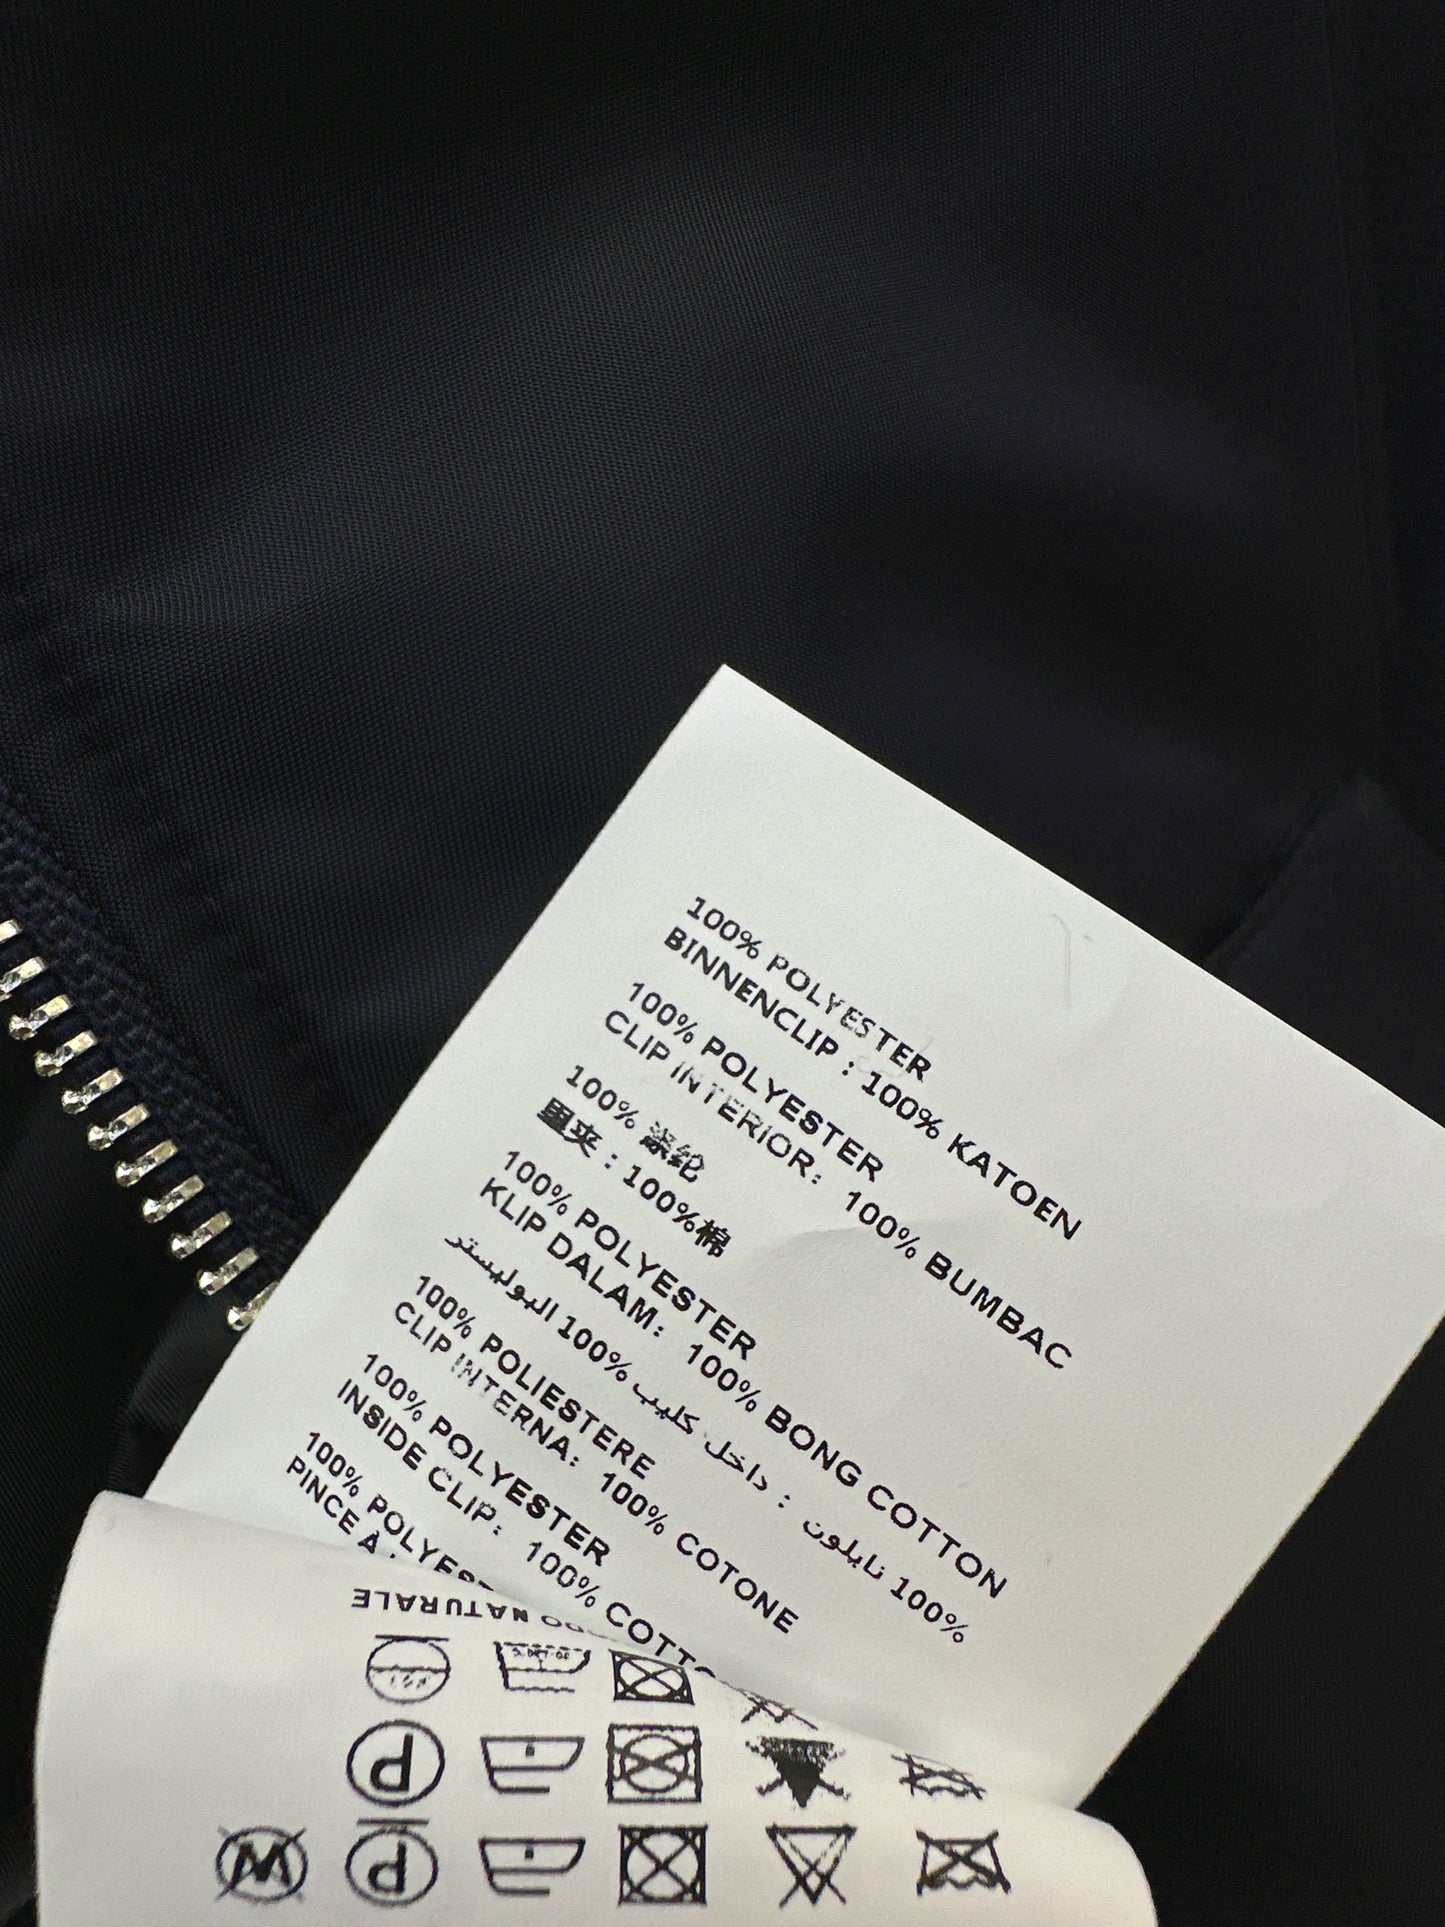 100% POLYESTER
BINNENCLIP : 100% KATOEN
100% POLYESTER
CLIP INTERIOR: 100% BUMBAC
100% 涤纶
里夹 : 100%棉
100% POLYESTER
KLIP DALAM: 100% BONG COTTON
100% نايلون : داخل كليب %100 البوليستر
100% POLIESTERE
CLIP INTERNA: 100% COTONE
100% POLYESTER
INSIDE CLIP: 100% COTT
100% POLYEST
PINCE À
NATURALE
P
P
M